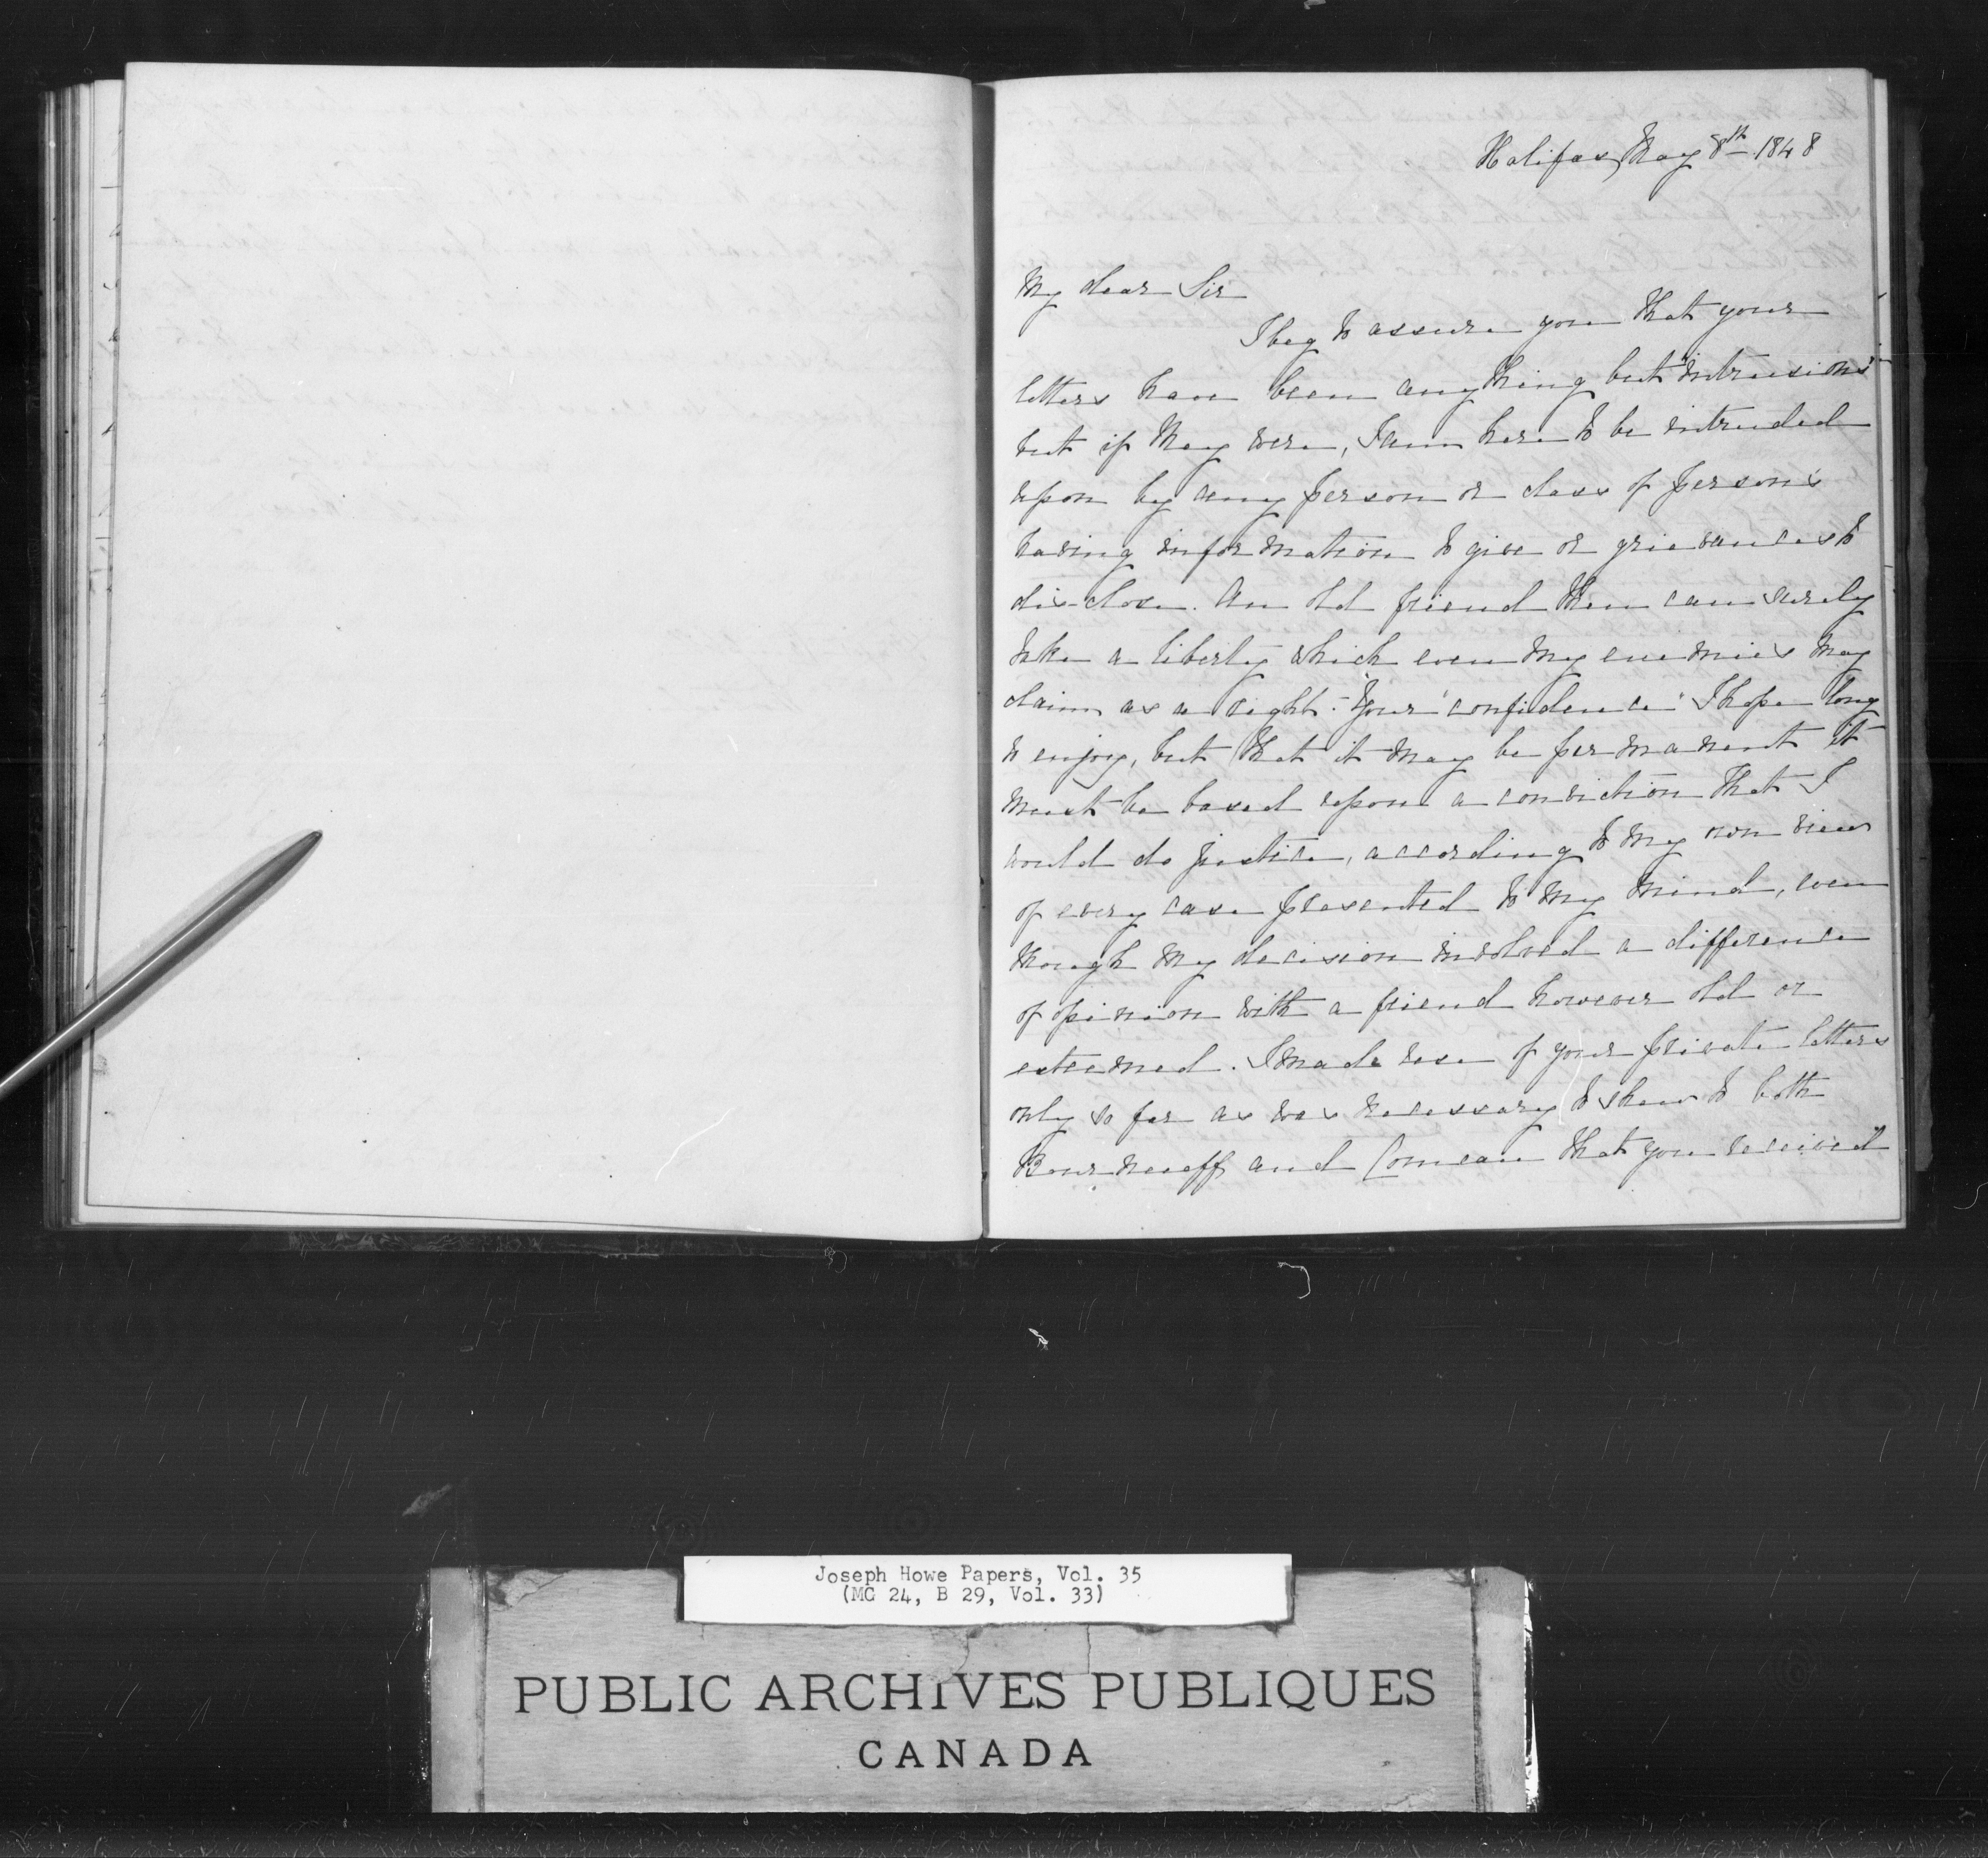 Halifax, May 8th 1848
My dear Sir
I beg to assure you that your
letters have been anything but "intrusions"
but if they were, I am here to be intruded
upon by any person or class of persons
having information to give or grievances to
disclose. An old friend then can surely
take a liberty which even my enemies may
claim as a right. Your "confidence" I hope long
to enjoy, but that it may be permanent it
must be based upon a conviction that I
would do justice, according to my own view
of every case presented to my mind, even
though my decision involved a difference
of opinion with a friend however old or
esteemed. I made use of your private letters
only so far as was necessary to shew to both
Bourneuff and Comeau that you received
Joseph Howe Papers, Vol. 35
(MG 24, B 29, Vol. 33)
PUBLIC ARCHIVES PUBLIQUES
CANADA